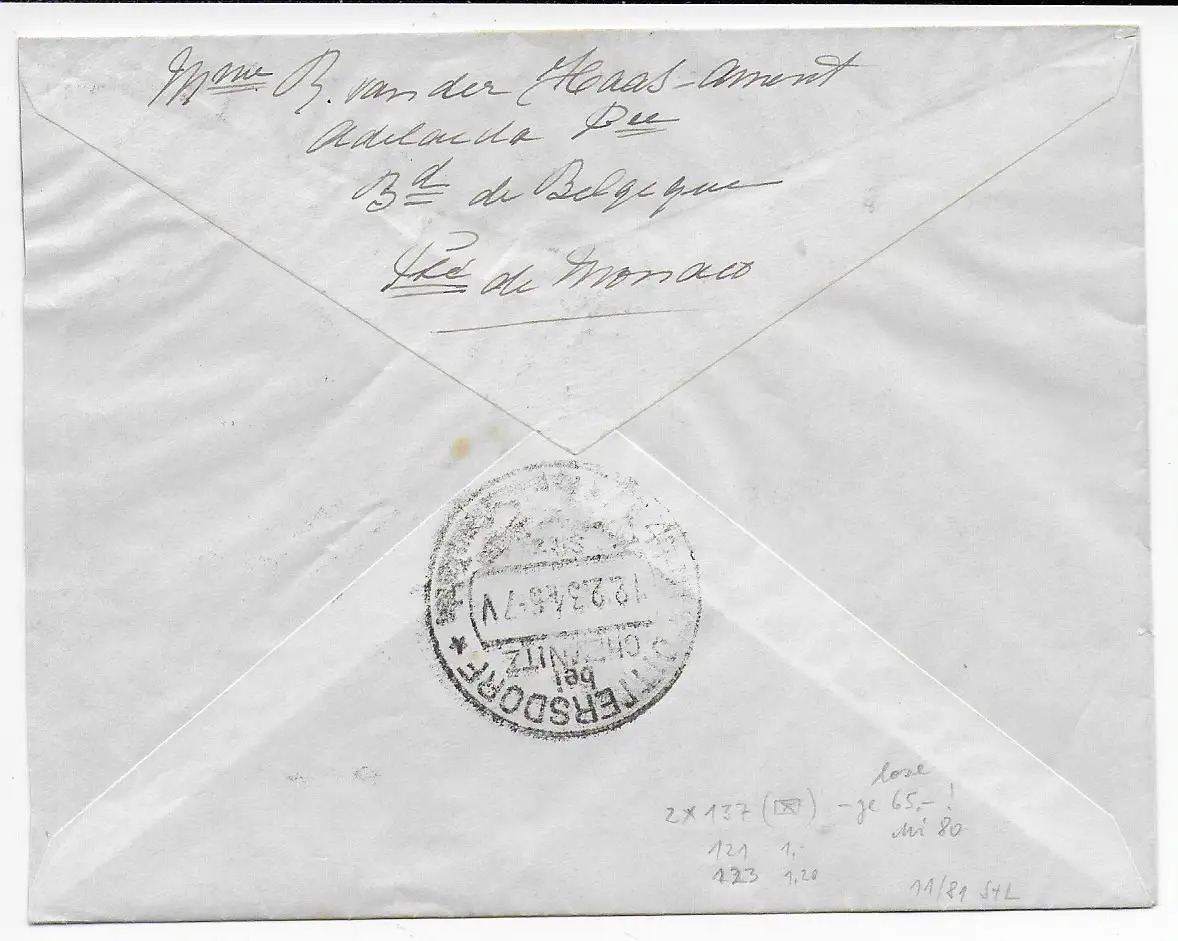 Mme R. van der Haas-Ament
Adelaida
Bd de Belgique
Pté de Monaco
12.2.34.6-7V
CHEMNITZ
bei
TTERSDORF *
lose
2 x 137 ( ) - je 65,- !
Mi 80
121 1,-
123 1,20
11/81 StL